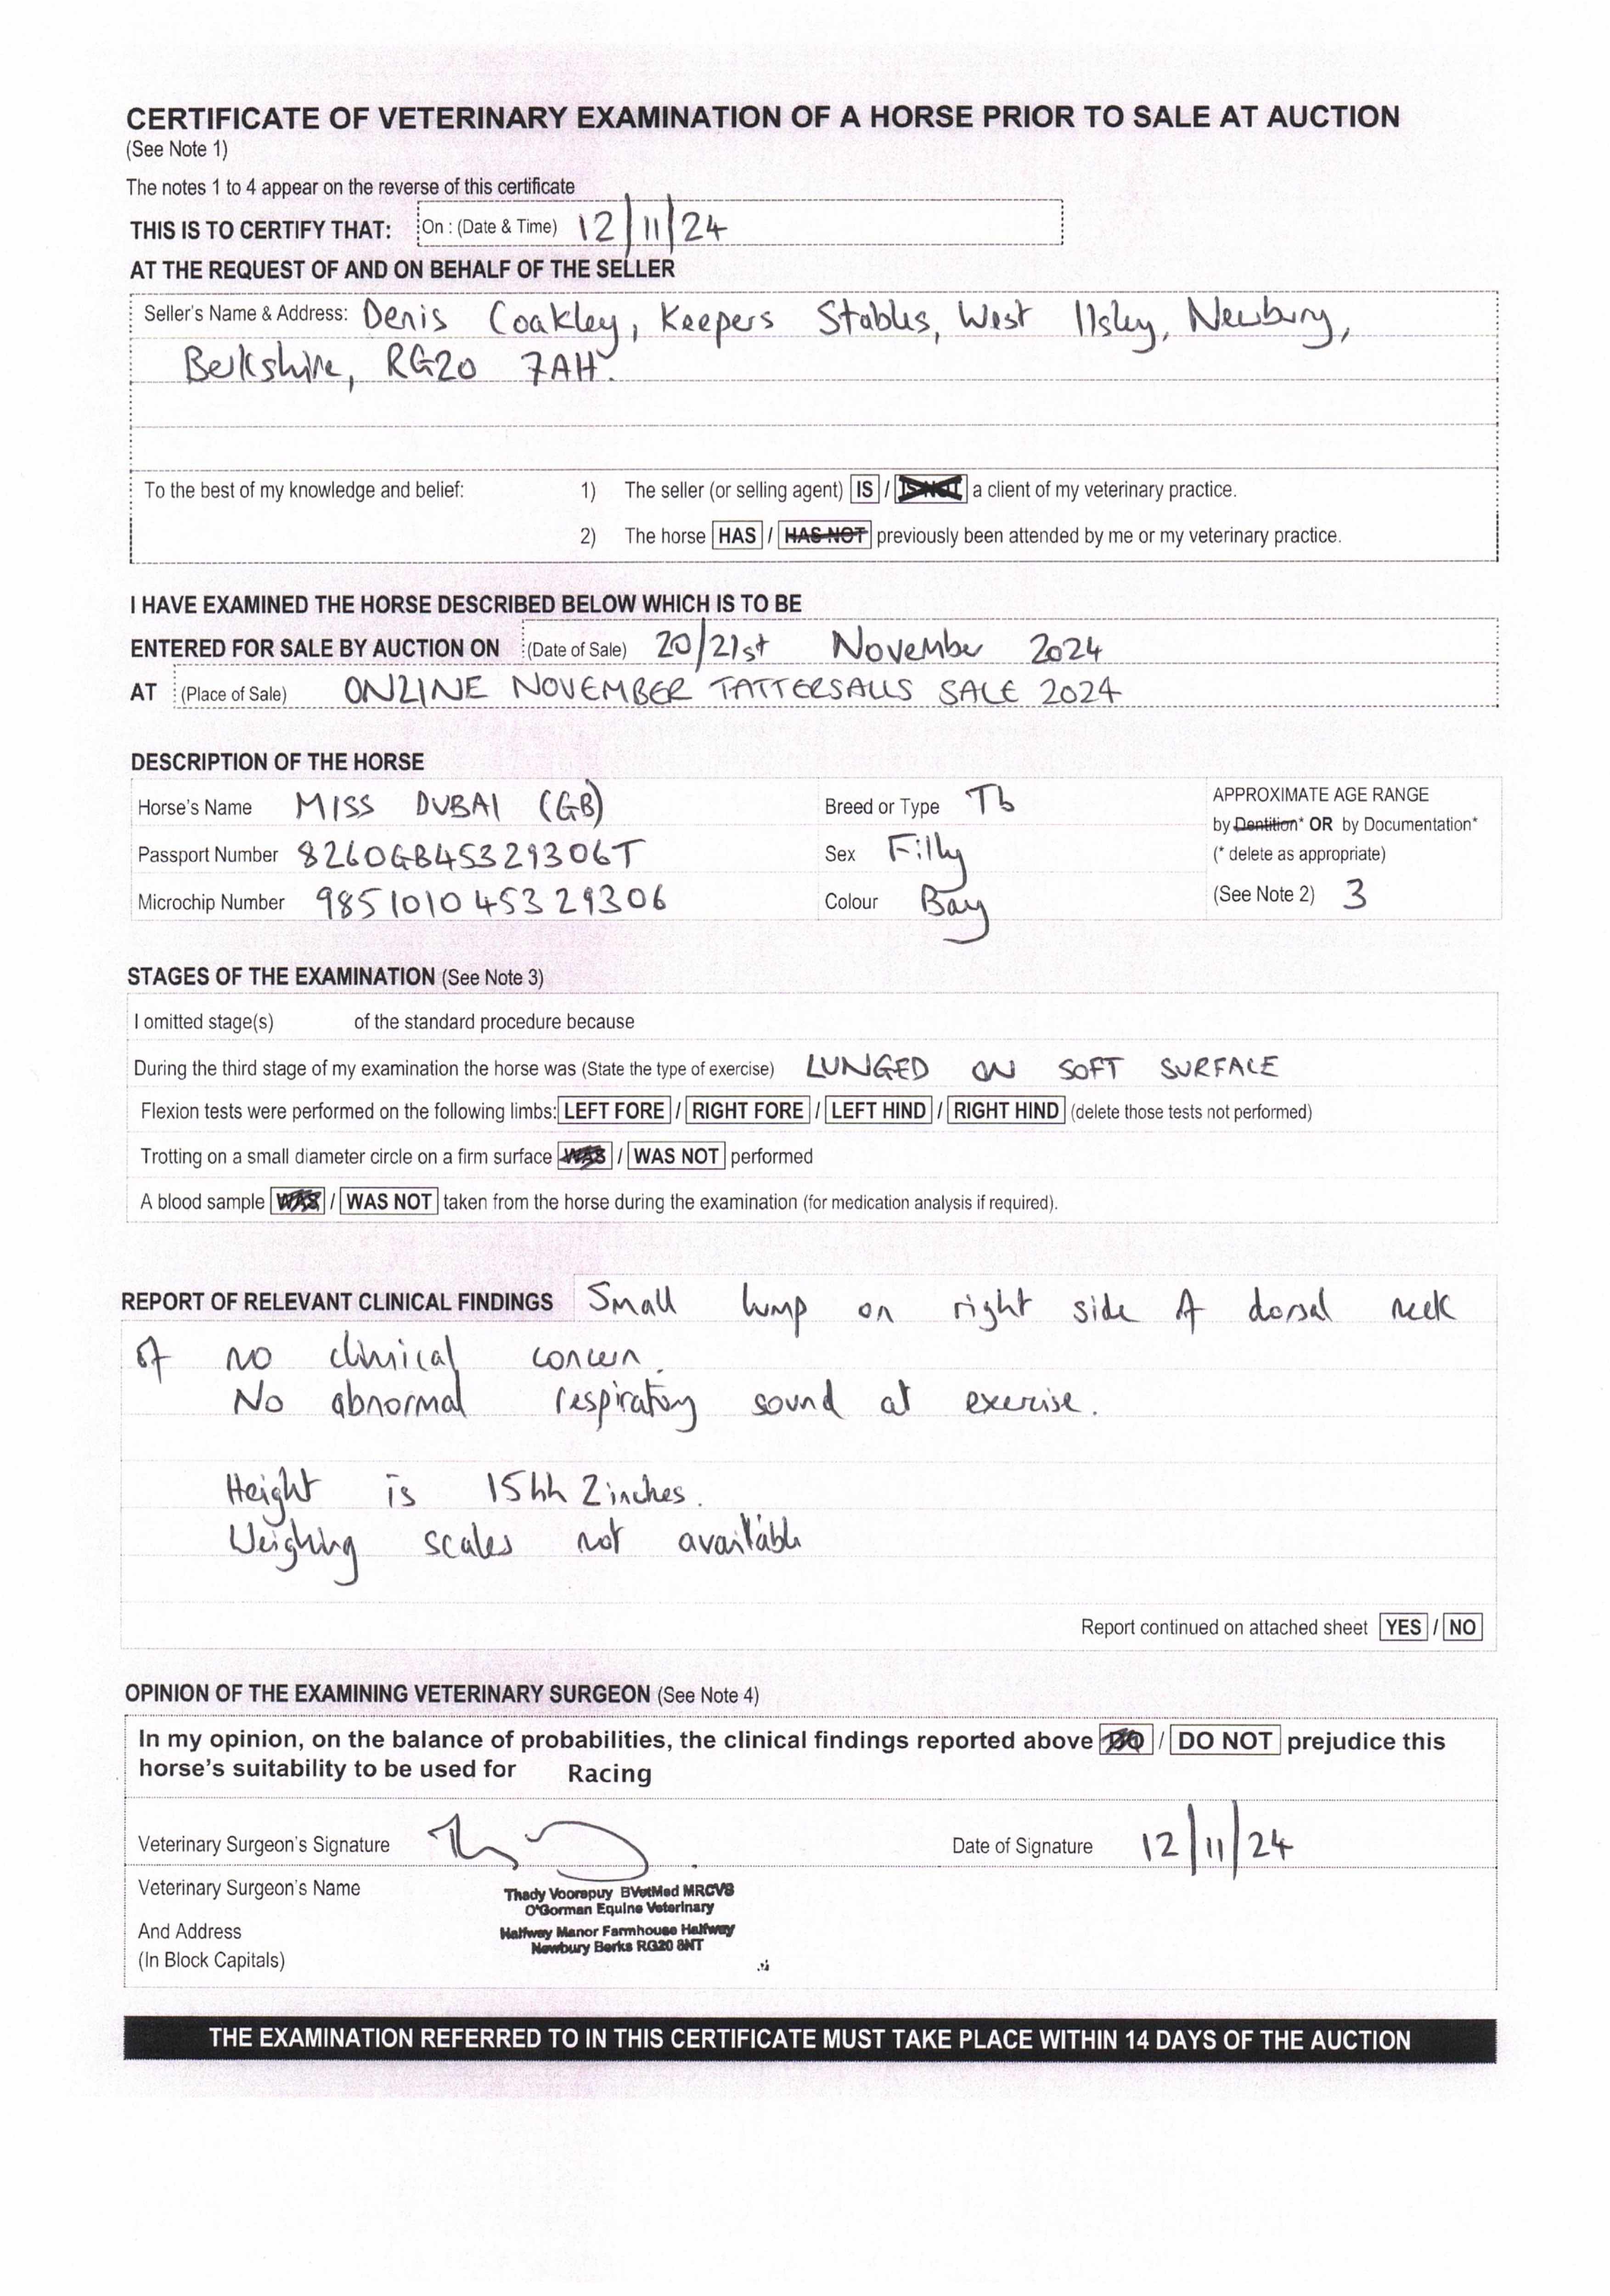 CERTIFICATE OF VETERINARY EXAMINATION OF A HORSE PRIOR TO SALE AT AUCTION
(See Note 1)
The notes 1 to 4 appear on the reverse of this certificate
THIS IS TO CERTIFY THAT: On : (Date & Time) 12/11/24
AT THE REQUEST OF AND ON BEHALF OF THE SELLER
Seller's Name & Address: Denis Coakley, Keepers Stables, West Ilsley, Newbury,
Berkshire, RG20 7AH.
To the best of my knowledge and belief: 1) The seller (or selling agent) IS / IS NOT a client of my veterinary practice.
2) The horse HAS / HAS NOT previously been attended by me or my veterinary practice.
I HAVE EXAMINED THE HORSE DESCRIBED BELOW WHICH IS TO BE
ENTERED FOR SALE BY AUCTION ON (Date of Sale) 20/21st November 2024
AT (Place of Sale) ONLINE NOVEMBER TATTERSALLS SALE 2024
DESCRIPTION OF THE HORSE
Horse's Name MISS DUBAI (GB) Breed or Type Tb APPROXIMATE AGE RANGE
by Dentition* OR by Documentation*
Passport Number 826OGB45329306T Sex Filly (* delete as appropriate)
Microchip Number 985101045329306 Colour Bay (See Note 2) 3
STAGES OF THE EXAMINATION (See Note 3)
I omitted stage(s) of the standard procedure because
During the third stage of my examination the horse was (State the type of exercise) LUNGED ON SOFT SURFACE
Flexion tests were performed on the following limbs: LEFT FORE / RIGHT FORE / LEFT HIND / RIGHT HIND (delete those tests not performed)
Trotting on a small diameter circle on a firm surface WAS / WAS NOT performed
A blood sample WAS / WAS NOT taken from the horse during the examination (for medication analysis if required).
REPORT OF RELEVANT CLINICAL FINDINGS Small lump on right side of dorsal neck
of no clinical concern.
No abnormal respiratory sound at exercise.
Height is 15hh 2 inches.
Weighing scales not available
Report continued on attached sheet YES / NO
OPINION OF THE EXAMINING VETERINARY SURGEON (See Note 4)
In my opinion, on the balance of probabilities, the clinical findings reported above DO / DO NOT prejudice this
horse's suitability to be used for Racing
Veterinary Surgeon's Signature Date of Signature 12/11/24
Veterinary Surgeon's Name Thady Voorspuy BVetMed MRCVS
O'Gorman Equine Veterinary
And Address Halfway Manor Farmhouse Halfway
Newbury Berks RG20 8NT
(In Block Capitals)
THE EXAMINATION REFERRED TO IN THIS CERTIFICATE MUST TAKE PLACE WITHIN 14 DAYS OF THE AUCTION